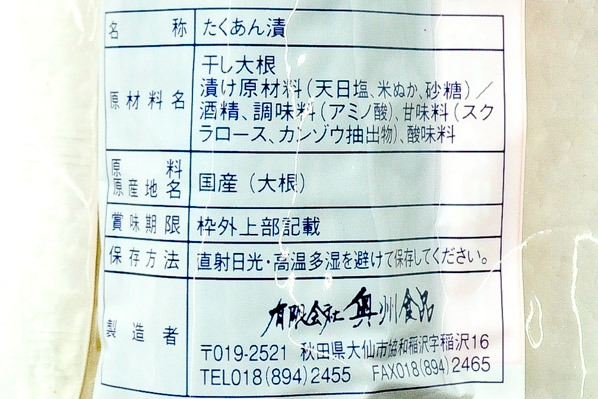 名称 たくあん漬
原材料名 干し大根
漬け原材料(天日塩、米ぬか、砂糖)／
酒精、調味料(アミノ酸)、甘味料(スク
ラロース、カンゾウ抽出物)、酸味料
原料原産地名 国産(大根)
賞味期限 枠外上部記載
保存方法 直射日光・高温多湿を避けて保存してください。
製造者 有限会社 奥州食品
〒019-2521 秋田県大仙市協和稲沢字稲沢16
TEL018(894)2455 FAX018(894)2465